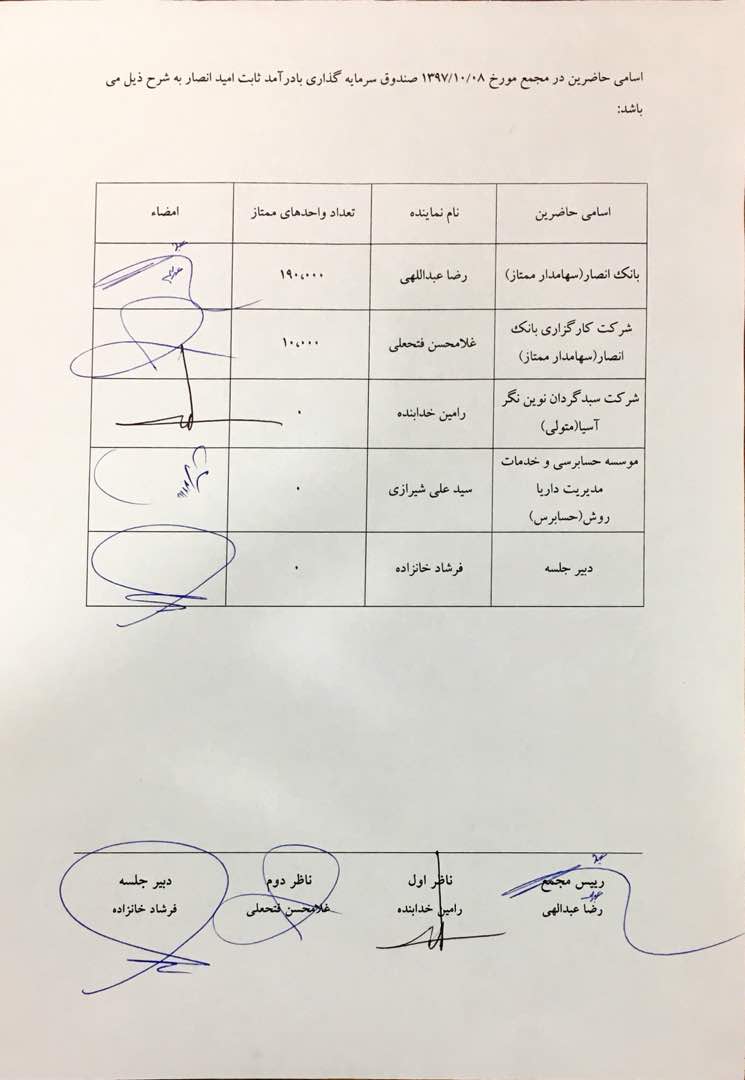 اسامی حاضرین در مجمع مورخ ۱۳۹۷/۱۰/۰۸ صندوق سرمایه گذاری بادرآمد ثابت امید انصار به شرح ذیل می
باشد:
اسامی حاضرین نام نماینده تعداد واحدهای ممتاز امضاء
بانک انصار(سهامدار ممتاز) رضا عبداللهی ۱۹۰،۰۰۰
شرکت کارگزاری بانک
انصار(سهامدار ممتاز) غلامحسن فتحعلی ۱۰،۰۰۰
شرکت سبدگردان نوین نگر
آسیا(متولی) رامین خدابنده ۰
موسسه حسابرسی و خدمات
مدیریت داریا
روش(حسابرس) سید علی شیرازی ۰
دبیر جلسه فرشاد خانزاده ۰
رییس مجمع ناظر اول ناظر دوم دبیر جلسه
رضا عبدالهی رامین خدابنده غلامحسن فتحعلی فرشاد خانزاده